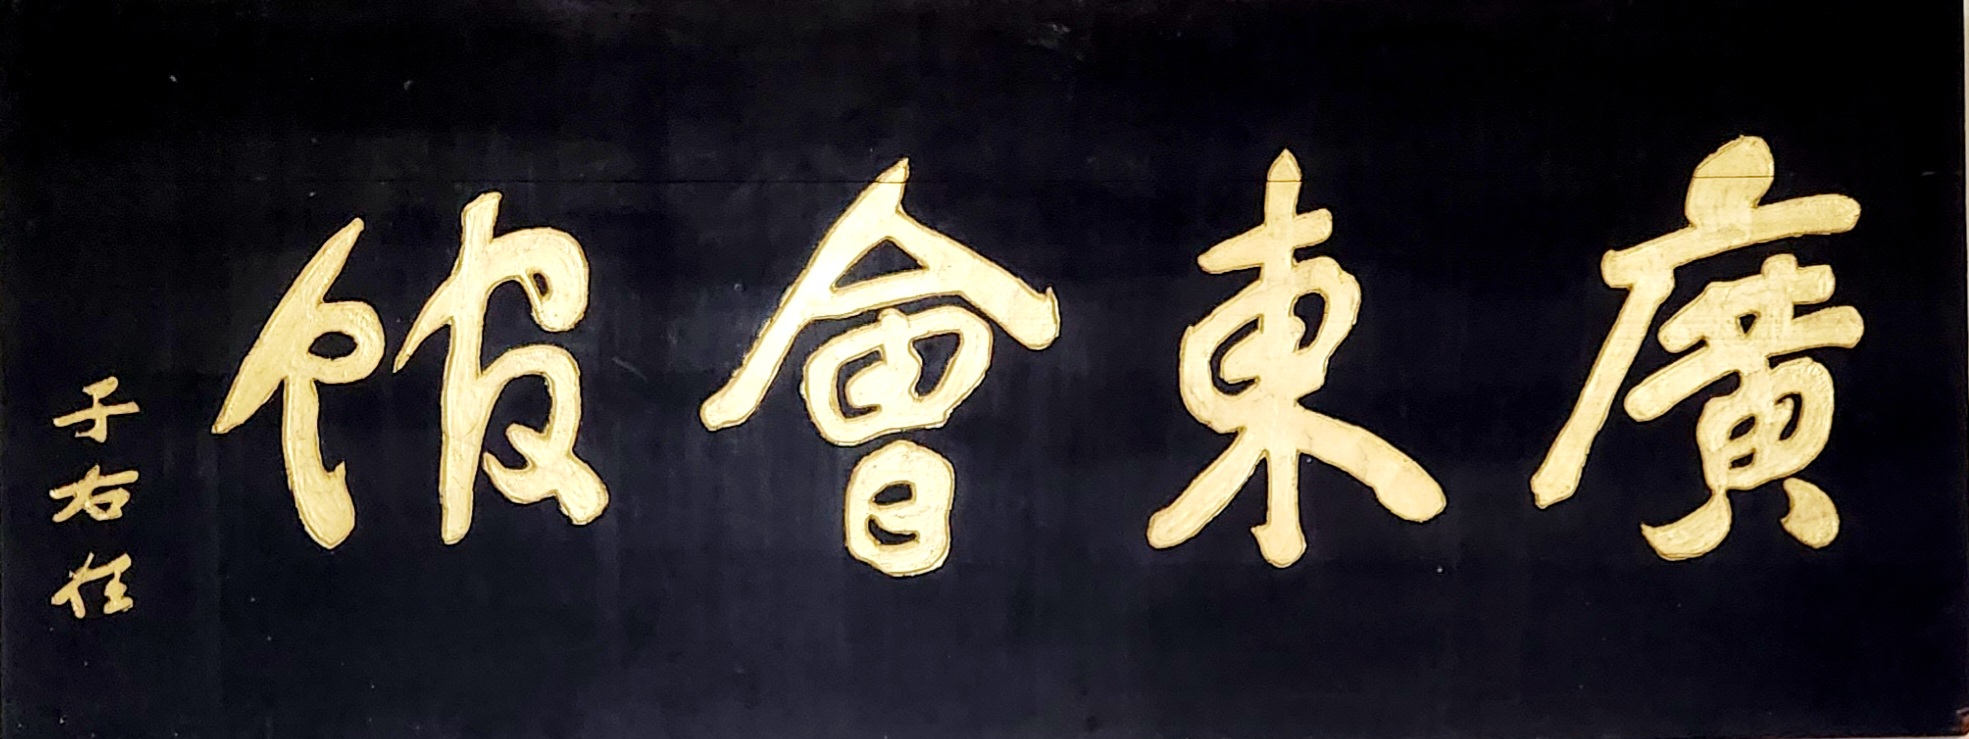 廣東會館
于右任